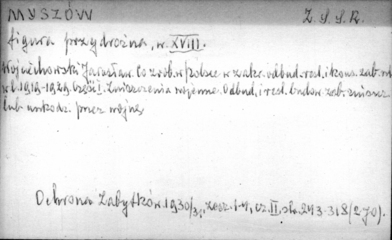 MYSZÓW Z.S.S.R.
figura przydrożna, w. XVIII.
Wojciechowski Jarosław. Co zrob. w Polsce w zakr. odbud. rest. i kons. zab. arch.
w l. 1919-1929. Część I. Zniszczenia wojenne. Odbud. i rest. budow. zab. zniszcz.
lub uszkodz. przez wojnę,
Ochrona Zabytków. 1930/31, zesz. 1-4, cz. II, str. 243-318 (270).